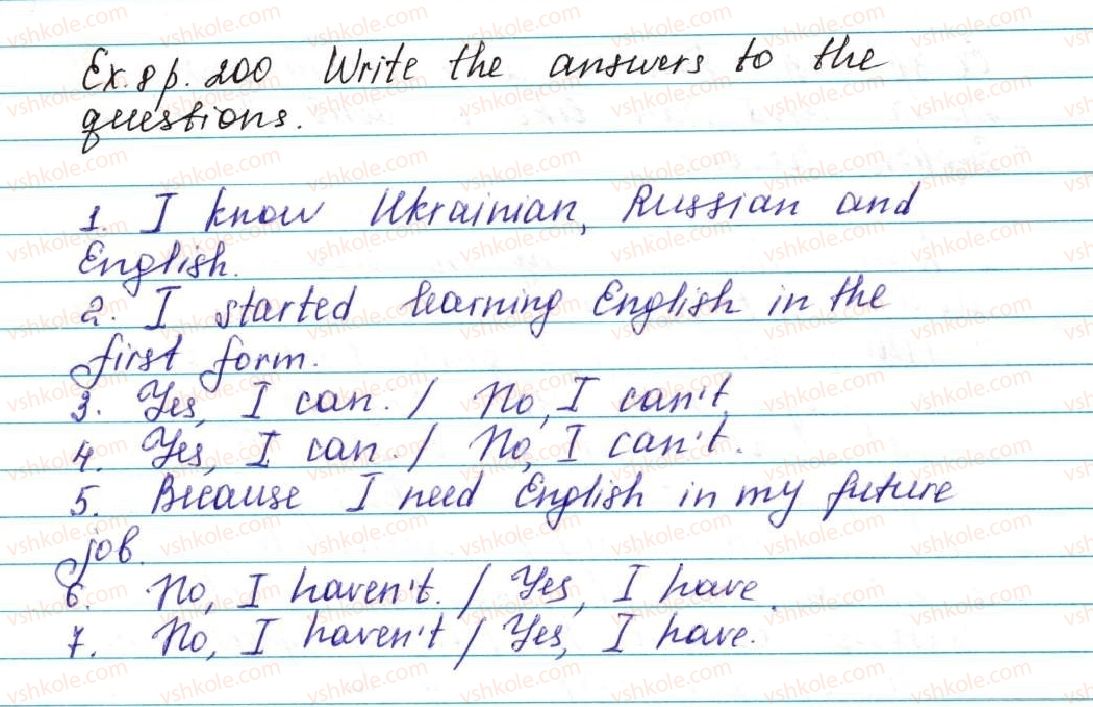 Ex. 8 p. 200 Write the answers to the
questions.
1. I know Ukrainian, Russian and
English.
2. I started learning English in the
first form.
3. Yes, I can. / No, I can't
4. Yes, I can. / No, I can't.
5. Because I need English in my future
job.
6. No, I haven't. / Yes, I have.
7. No, I haven't / Yes, I have.